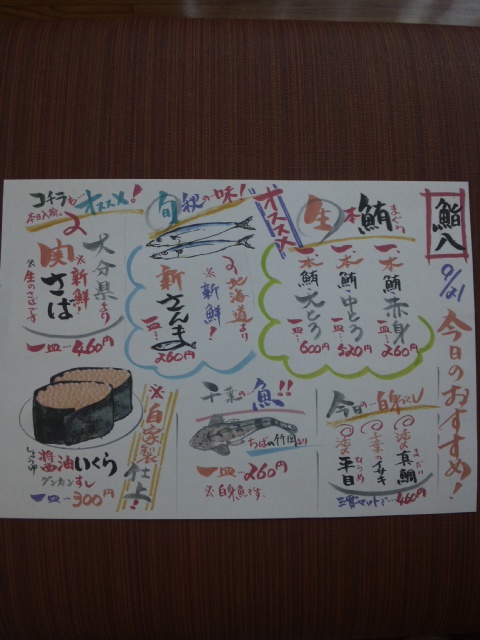 鮨八
9/21
今日のおすすめ!
生本鮪
まぐろ
オススメ
一本鮪赤身
一皿…260円
一本鮪中とろ
一皿…520円
一本鮪大とろ
一皿…600円
旬秋の味!
北海道より
※新鮮!
新さんま
一皿…260円
コチラも…オススメ!
本日入荷。
大分県より
※新鮮!
関さば
※生のさばです
一皿…460円
今日の…白身づくし
真鯛
まだい
イサキ
平目
ひらめ
三貫セットで…460円
千葉の…魚!!
ちばの竹岡より
一皿…260円
※白身魚です。
※自家製仕上!
醤油いくら
しょうゆ
グンカンすし
一皿…300円